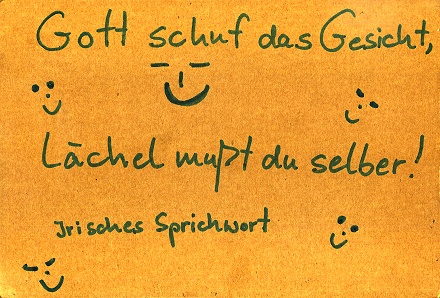 Gott schuf das Gesicht,
Lächel mußt du selber!
Irisches Sprichwort